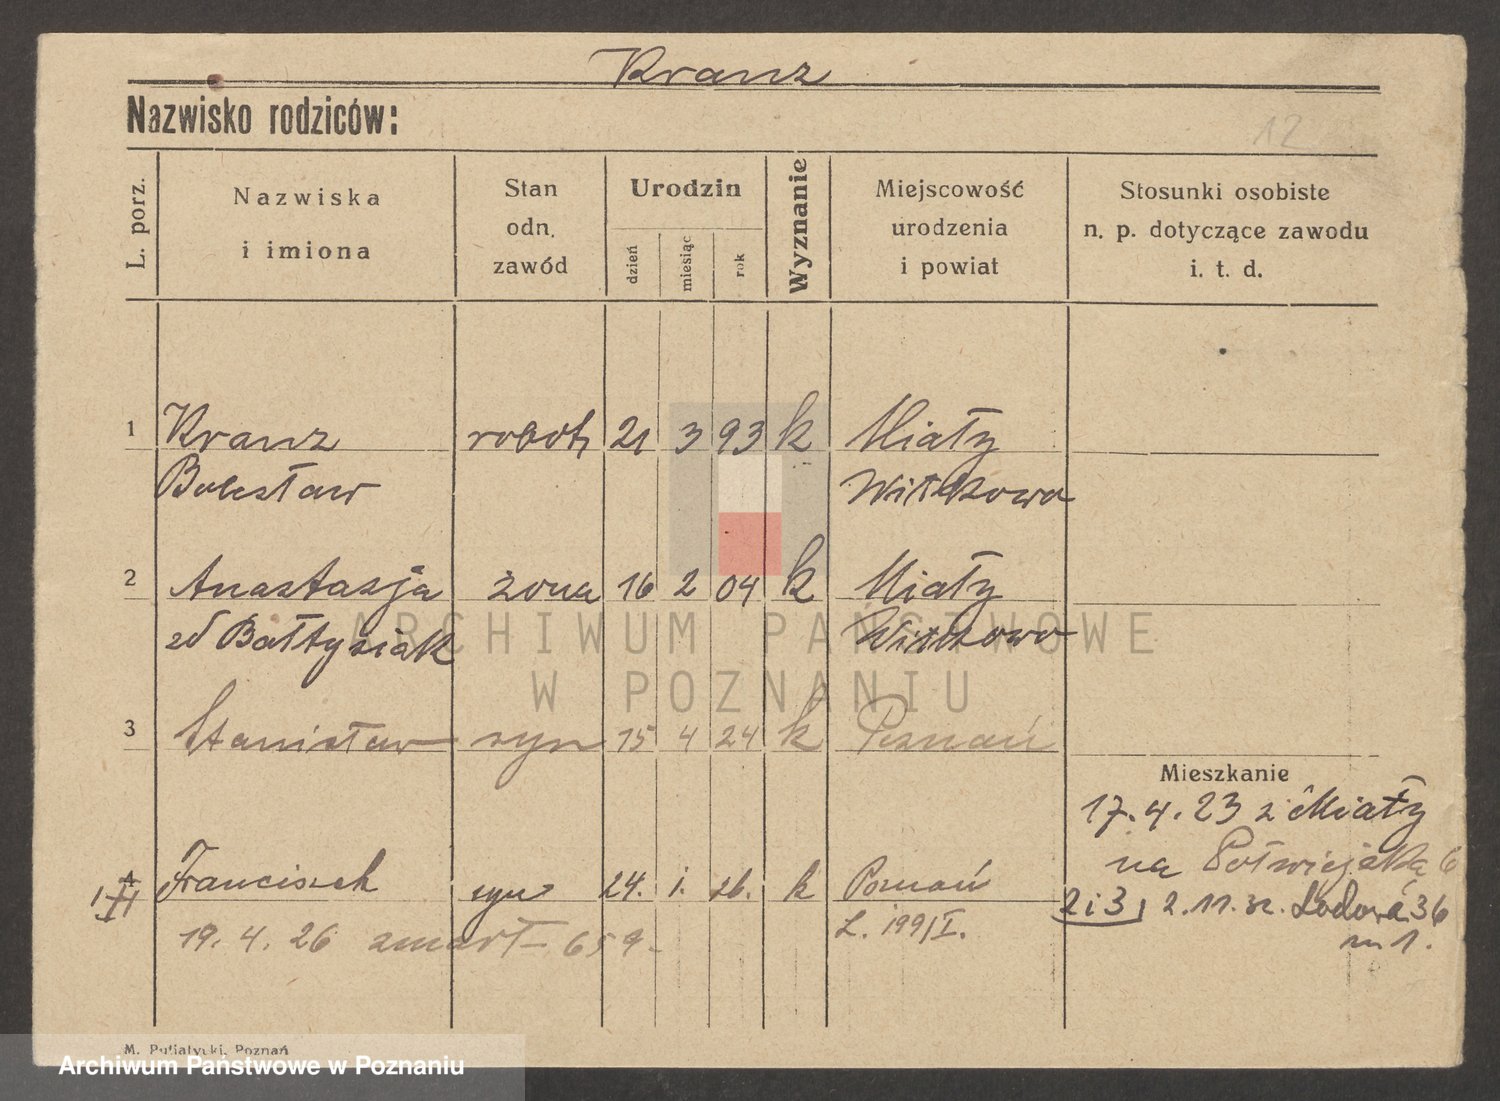 Kranz
Nazwisko rodziców:
12
L. porz.
Nazwiska
i imiona
Stan
odn.
zawód
Urodzin
dzień
miesiąc
rok
Wyznanie
Miejscowość
urodzenia
i powiat
Stosunki osobiste
n. p. dotyczące zawodu
i. t. d.
1 Kranz robotn 21 3 93 k Miaty
Bolesław Witkowo
2 Anastazja żona 16 2 04 k Miaty
zd Bałtyziak Witkowo
ARCHIWUM PAŃSTWOWE
W POZNANIU
3 Stanisław syn 15 4 24 k Poznań
Mieszkanie
17.4.23 z Miaty
na Półwiejską 6
4 Franciszek syn 24. 1. 26. k Poznań
2 i 3, 2.11.32. Łodowa 36
m 1.
19. 4. 26 zmarł - 659 -
L. 199/I.
M. Putiatycki, Poznań
Archiwum Państwowe w Poznaniu